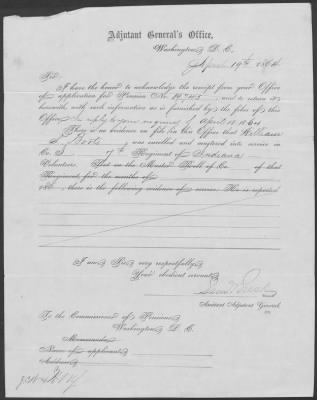 Adjutant General's Office,
Washington, D. C.
April 19th 1864
Sir:
I have the honor to acknowledge the receipt from your Office
of application for Pension No. and to return it
herewith, with such information as is furnished by the files of this
Office in reply to your request of April 18 1864
There is no evidence on file in this Office that William
S. was enrolled and mustered into service in
Co. 7th Regiment of Indiana
Volunteers. That on the Muster Roll of Co. of that
Regiment for the months of
186 , there is the following evidence of service. He is reported
I am, Sir, very respectfully,
Your obedient servant,
Assistant Adjutant General.
To the Commissioner of Pensions,
Washington, D. C.
Memoranda:
Name of applicant,
Address,